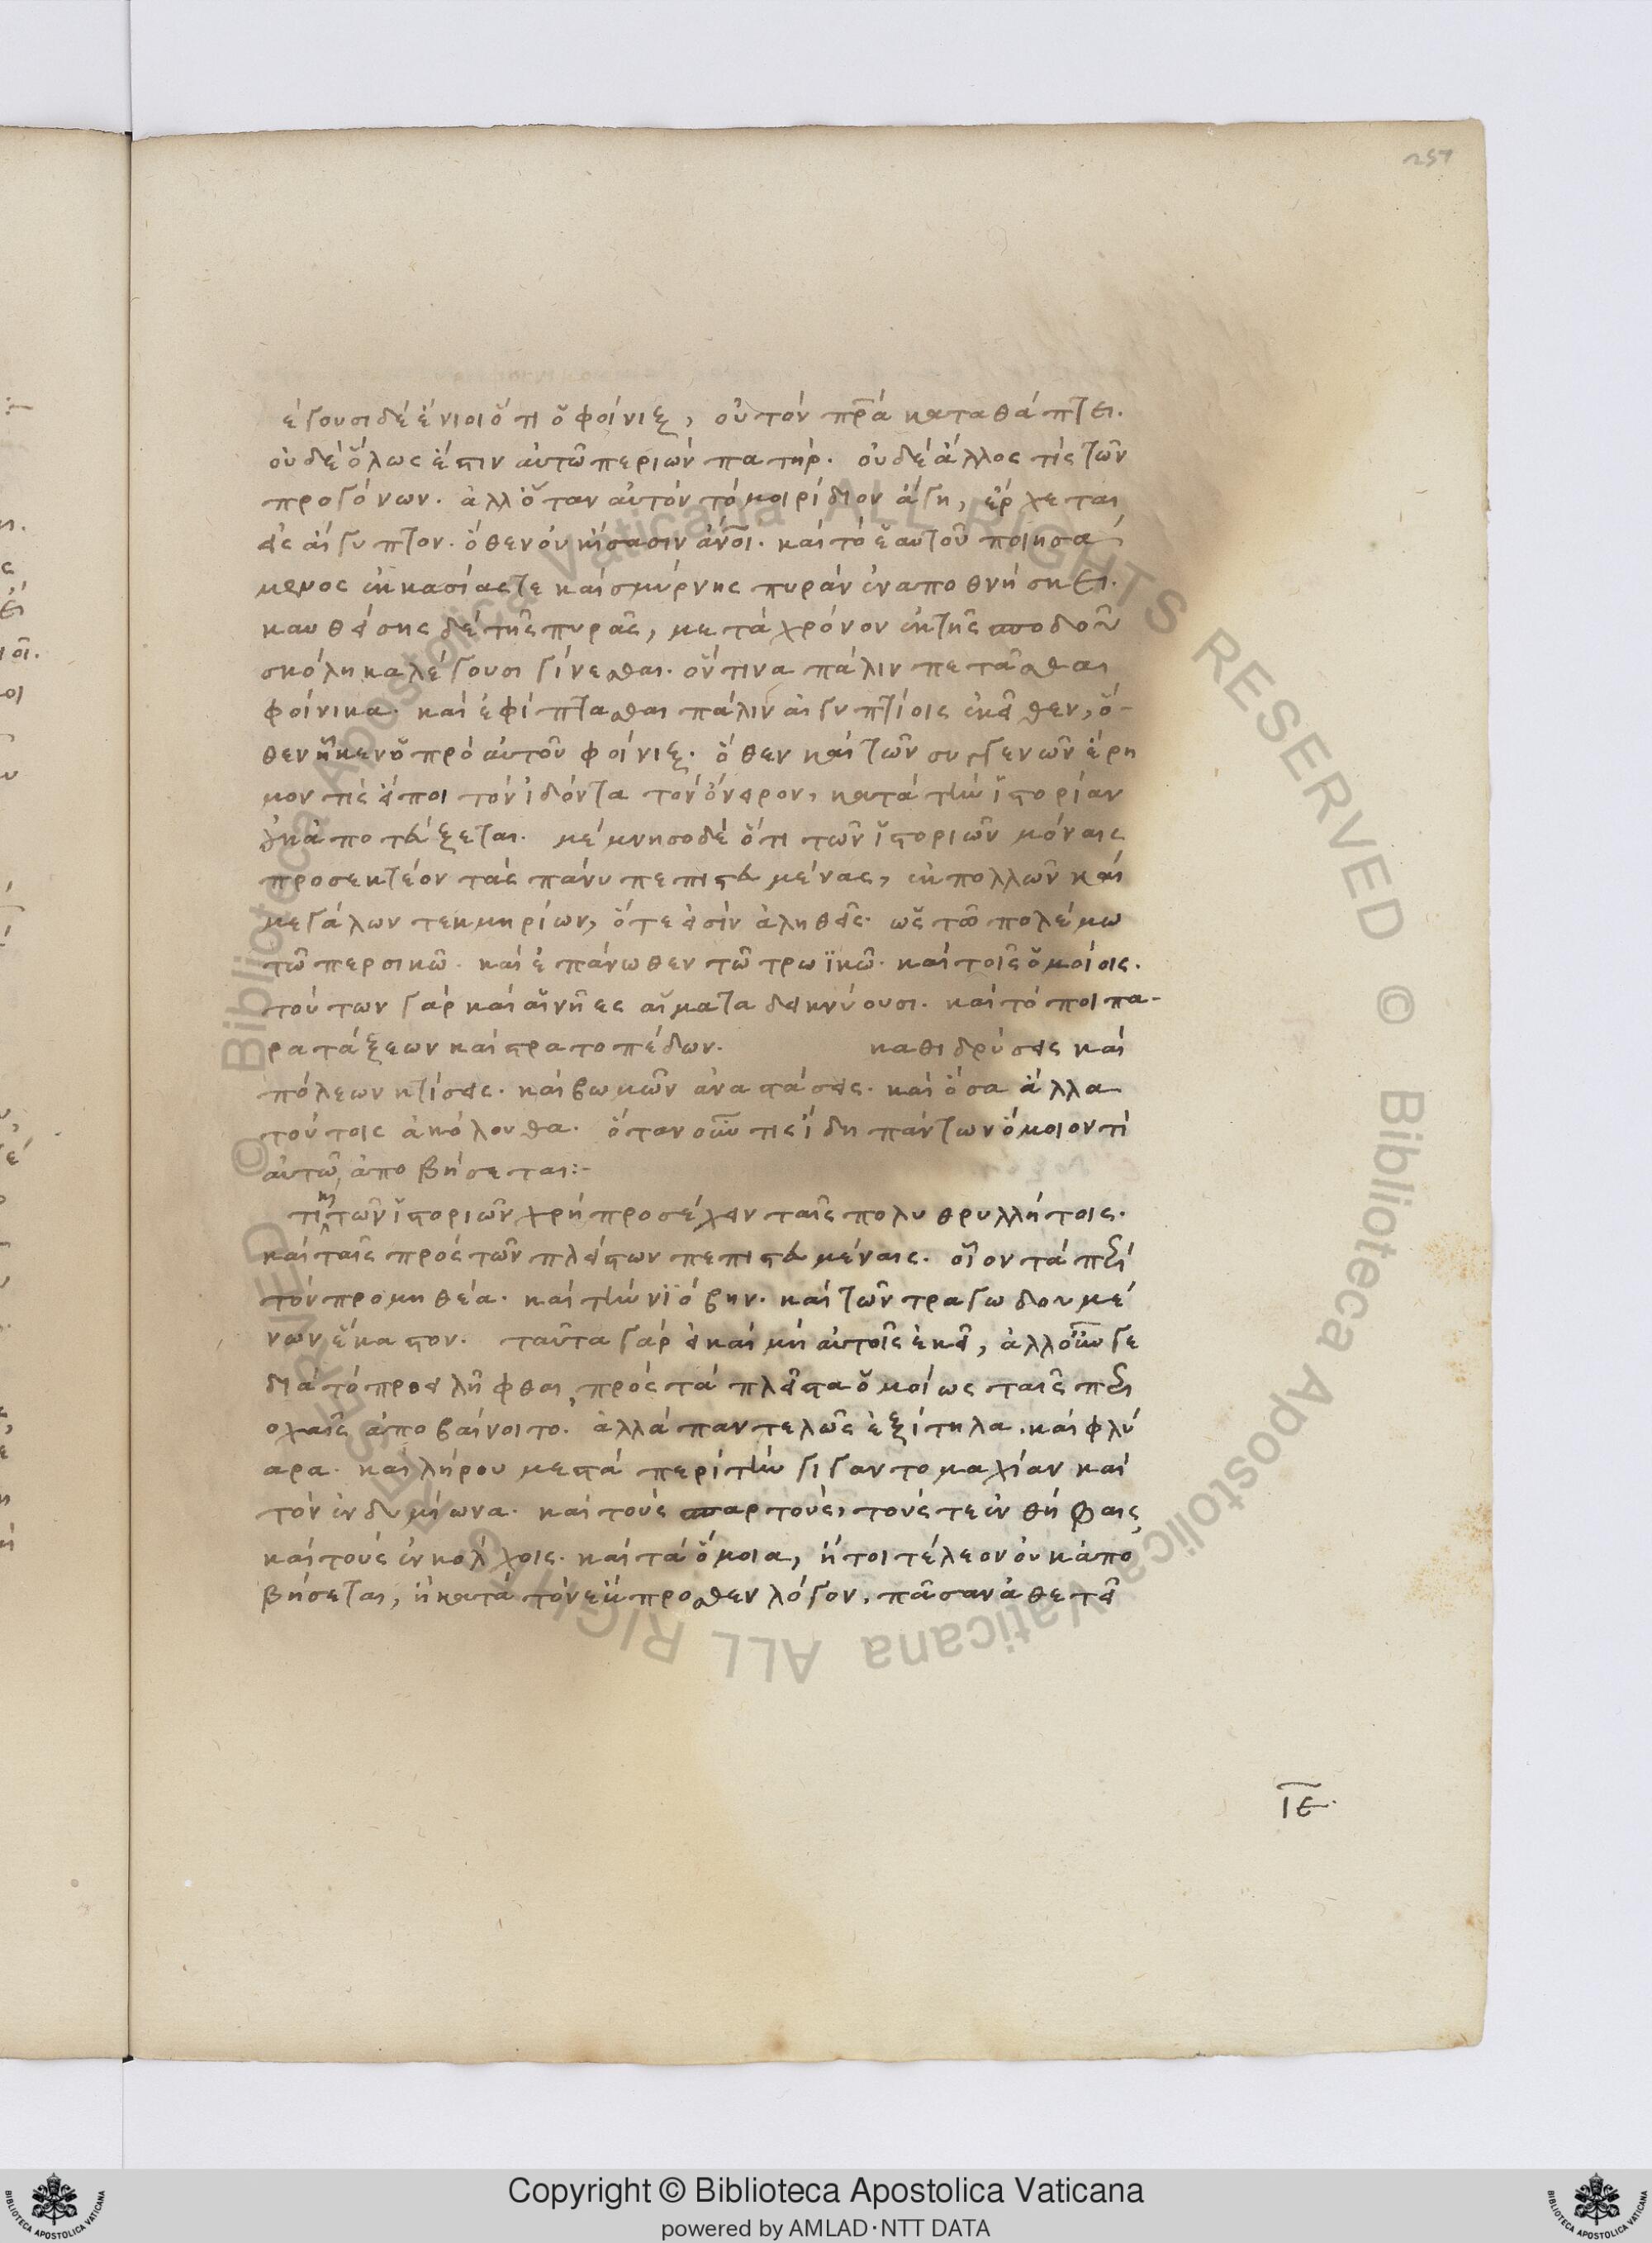 257
έγουσι δέ ἔνιοι ὅτι ὁ φοίνιξ, οὐ τὸν πρ̅α καταθάπτει.
οὐδέ ὅλως ἔστιν αὐτῶ περιών πατήρ. οὐδέ ἄλλος τίς τῶν
προγόνων. ἀλλ' ὅταν αὐτόν τό μοιρίδιον ἄγη, ἔρχεται
εἰς αἴγυπτον. ὅθεν οὐκ ἴσασιν ἄν̅οι. καί τό ἑαυτοῦ ποιησά
μενος ἐκ κασίας τε καί σμύρνης πυράν ἐναποθνήσκει.
καυθείσης δέ τῆς πυρᾶς, μετά χρόνον ἐκ τῆς σποδοῦ
σκόληκα λέγουσι γίνεσθαι. ὅντινα πάλιν πετᾶσθαι
φοίνικα. καί ἐφίπτασθαι πάλιν αἰγυπτίοις ἐκεῖθεν, ὅ-
θεν ἧκεν ὁ πρό αὐτοῦ φοίνιξ. ὅθεν καί τῶν συγγενῶν ἔρη
μον τίς εἴποι τόν ἰδόντα τόν ὄνειρον, κατά τήν ἱστορίαν
ἀποτάξεται. μέμνησο δέ ὅτι τῶν ἱστοριῶν μόναις
προσεκτέον τάς πάνυ πεπιστευμένας, ἐκ πολλῶν καί
μεγάλων τεκμηρίων, ὅτε εἰσίν ἀληθεῖς. ὡς τῶ πολέμω
τῶ περσικῶ. καί ἐπάνωθεν τῶ τρωϊκῶ. καί τοῖς ὁμοίοις.
τούτων γάρ καί αἵνῆες αἵματα δεικνύουσι. καί τόποι πα-
ρατάξεων καί στρατοπέδων. καθιδρύσεις καί
πόλεων κτίσεις. καί βωμῶν ἀναστάσεις. καί ὅσα ἄλλα
τούτοις ἀκόλουθα. ὅταν οὖν τις ἴδη πάντων ὅμοιον τί
αὐτῶ, ἀποβήσεται:-
τῶν ἱστοριῶν χρή προσέχειν ταῖς πολυθρυλλήτοις.
καί ταῖς πρός τῶν πλείστων πεπιστευμέναις. οἷον τά περί
τόν προμηθέα. καί τήν νϊόβην. καί τῶν τραγωδουμέ
νων ἕκαστον. ταῦτα γάρ εἰ καί μή αὐτοῖς ἐκεῖ, ἀλλ' οὖν γε
διά τό προειλῆφθαι, πρός τά πλεῖστα ὁμοίως ταῖς περι
οχαῖς ἀποβαίνοιτο. ἀλλά παντελῶς ἐξίτηλα. καί φλύ
αρα. καί λήρου μεστά περί τήν γιγαντομαχίαν καί
τόν ἐνδυμίωνα. καί τούς σπαρτούς, τούς τε ἐν θήβαις
καί τούς ἐν κολχοις. καί τά ὅμοια, ἤτοι τέλεον οὐκ ἀπο
βήσεται, ἤ κατά τόν ἔμπροσθεν λόγον, πᾶσαν ἀθετεῖ
ΙΕ.
© Biblioteca Apostolica Vaticana ALL RIGHTS RESERVED © Biblioteca Apostolica Vaticana ALL RIGHTS RESERVED
Copyright © Biblioteca Apostolica Vaticana
powered by AMLAD·NTT DATA
BIBLIOTECA APOSTOLICA VATICANA
BIBLIOTECA APOSTOLICA VATICANA